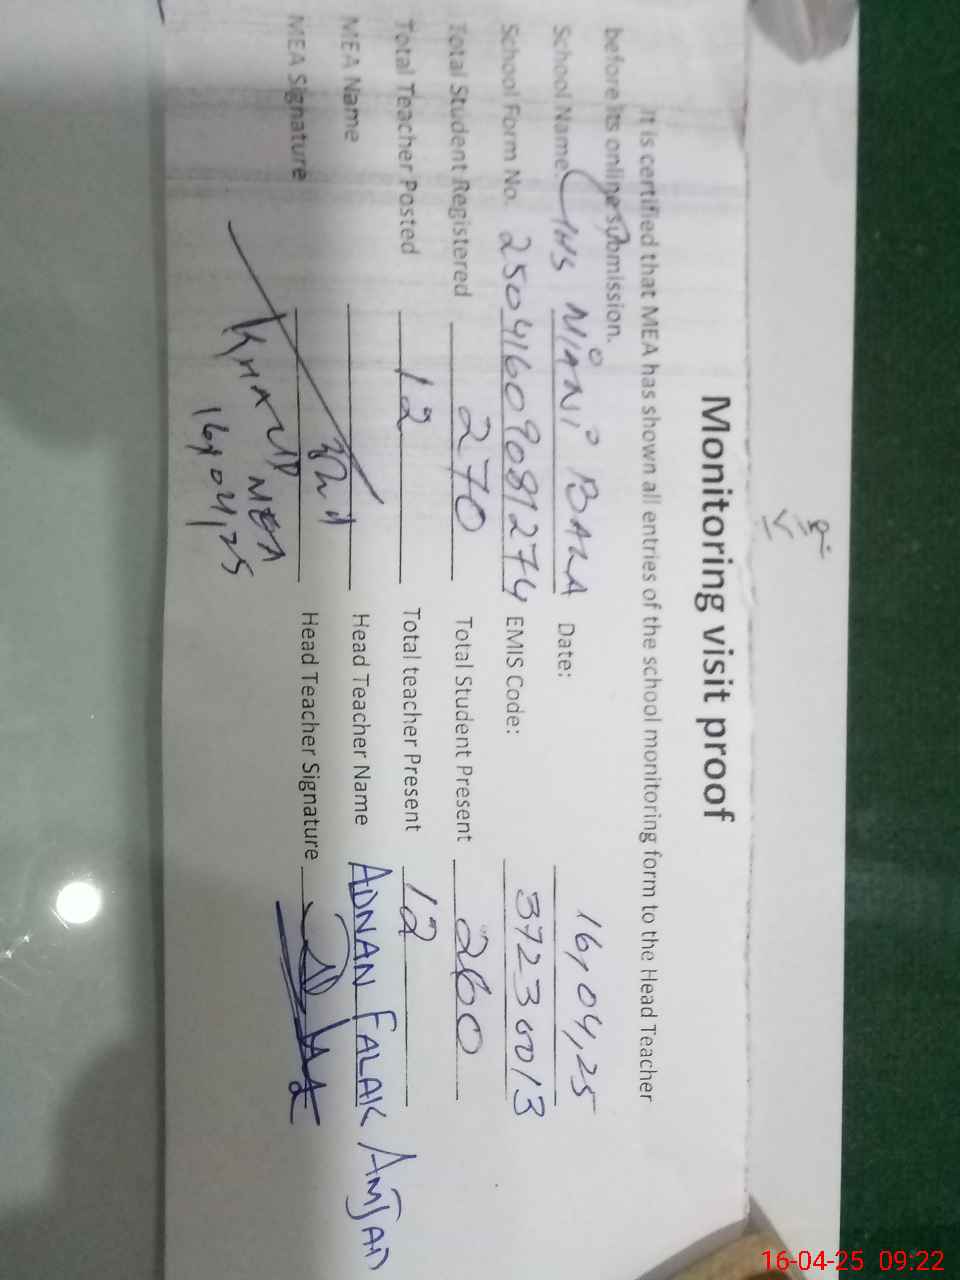 Monitoring visit proof
It is certified that MEA has shown all entries of the school monitoring form to the Head Teacher
before its online submission.
School Name: MIANI BALA Date: 16,04,25
School Form No. 25041609081274 EMIS Code: 37230013
Total Student Registered 270 Total Student Present 260
Total Teacher Posted 12 Total teacher Present 12
MEA Name Head Teacher Name ADNAN FALAK AMJAD
MEA Signature Head Teacher Signature
MEA
16,04,25
16-04-25 09:22